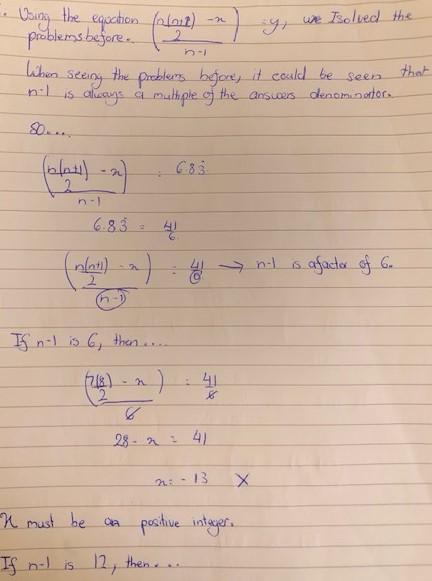 . Using the equation (n(n+1)/2 - x)/(n-1) = y, we Isolved the
problems before.
When seeing the problems before, it could be seen that
n-1 is always a multiple of the answers denominator.
So....
(n(n+1)/2 - x)/(n-1) = 6.83̇
6.83̇ = 41/6
(n(n+1)/2 - x)/(n-1) = 41/6 → n-1 is a factor of 6.
If n-1 is 6, then ....
(7(8)/2 - x)/6 = 41/6
28 - x = 41
x = -13 X
x must be a positive integer.
If n-1 is 12, then....